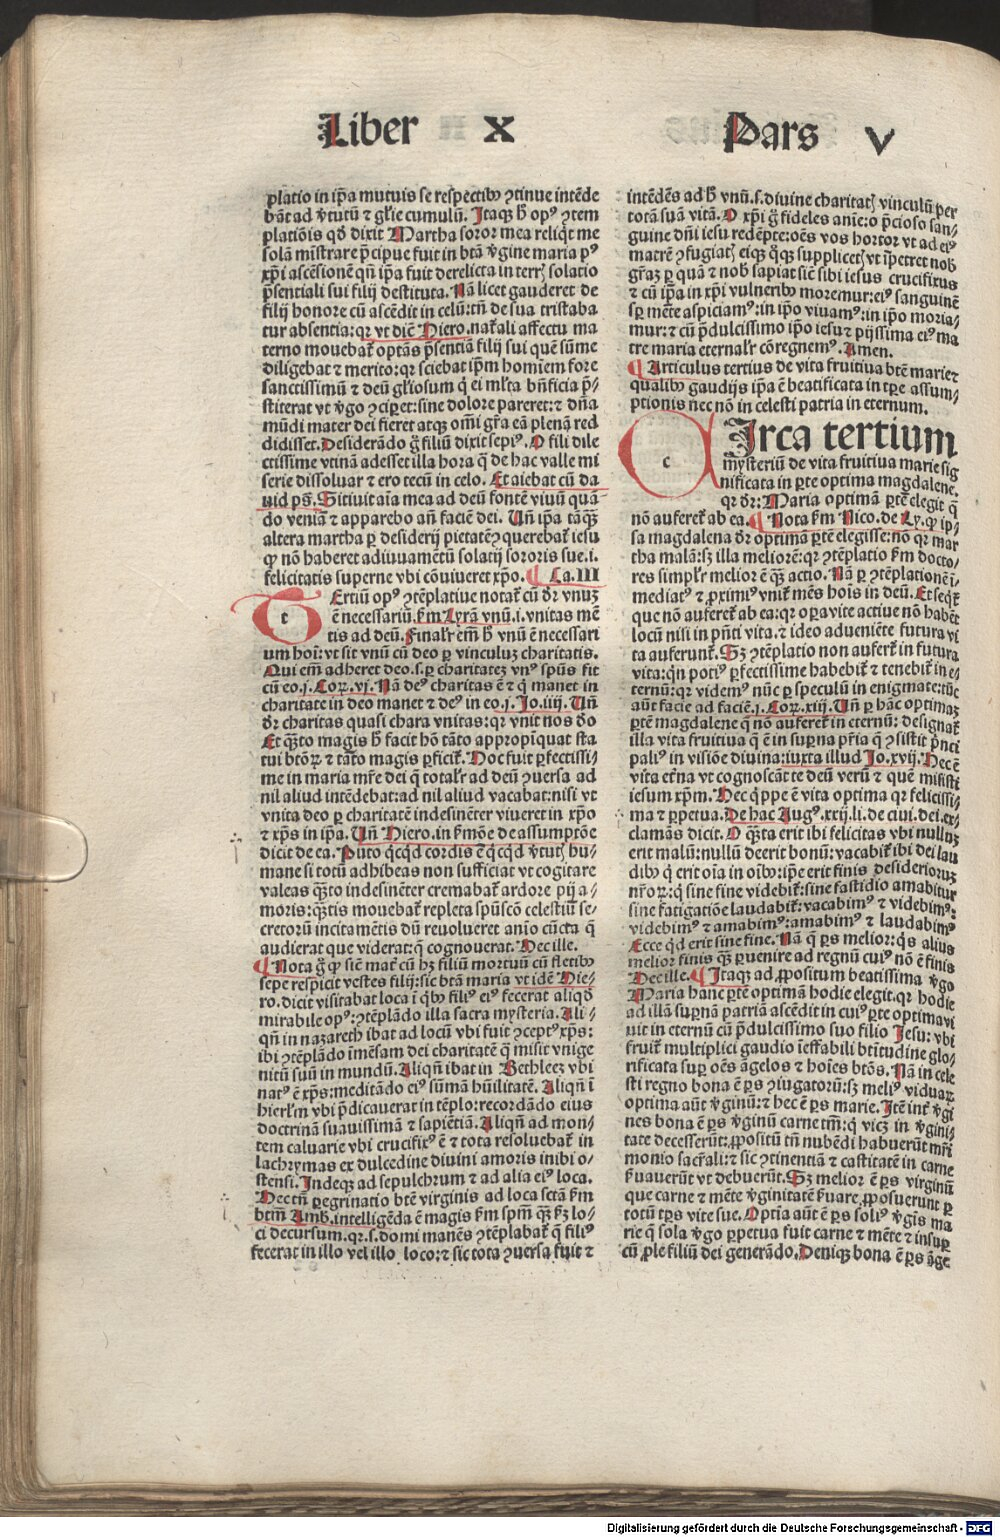 Liber X Pars V
platio in ip̃a mutuis se respectibꝰ ꝯtinue intẽde
bãt ad v̾tutũ ⁊ gl̃ie cumulũ. Itaqꝫ h̾ opꝰ ꝯtem
platiõis qd̾ dixit Martha soror mea reliq̃t me
solã mistrare p̃cipue fuit in btã v̾gine maria pꝰ
xp̃i ascẽsionẽ qñ ip̃a fuit derelicta in terrꝭ solatio
p̃sentiali sui filij destituta. Nã licet gauderet de
filij honore cũ ascẽdit in celũ: tñ de sua tristaba
tur absentia: qꝛ vt diẽ Hiero. nat̾ali affectu ma
terno mouebat̾ optãs p̃sentiã filij sui quẽ sũme
diligebat ⁊ merito: qꝛ sciebat ip̃m homiem fore
sanctissimũ ⁊ deũ gl̃iosum q̃ ei ml̾ta bñficia p̃⸗
stiterat vt v̾go ꝯciꝑet: sine dolore pareret: ⁊ dña
mũdi mater dei fieret atqꝫ om̃i gr̃a eã plenã red
didisset. Desiderãdo g̃ filiũ dixit sepiꝰ. O fili dile
ctissime vtinã adesset illa hora q̃ de hac valle mi
serie dissoluar ⁊ ero tecũ in celo. Et aiebat cũ da
uid pꝭ. Sitiuit aĩa mea ad deũ fontẽ viuũ quã⸗
do veniã ⁊ apparebo añ faciẽ dei. Uñ ip̃a tãqꝫ̃
altera martha ꝑ desiderij pietatẽ querebat iesũ
ꝙ nõ haberet adiuuamẽtũ solatij sororis sue .i.
felicitatis superne vbi cõuiueret xp̃o. Ca. III
tErtiũ opꝰ ꝯtẽplatiue notat̾ cũ dr̃ vnuꝫ
ẽ necessariũ. ẜm Lyrã vnũ .i. vnitas mẽ
tis ad deũ. Finalr̾ em̃ h̾ vnũ ẽ necessari
um hoĩ: vt sit vnũ cũ deo ꝑ vinculuꝫ charitatis.
Qui em̃ adheret deo .s. ꝑ charitateꝫ vnꝰ spũs fit
cũ eo .j. Coꝝ. vj. Nã deꝰ charitas ẽ ⁊ q̃ manet in
charitate in deo manet ⁊ deꝰ in eo .j. Jo. iiij. Uñ
dr̃ charitas quasi chara vnitas: qꝛ vnit nos deo
Et qꝫ̃to magis h̾ facit hõ tãto appropĩquat sta
tui btõꝝ ⁊ tãto magis ꝑficit̾. Hoc fuit ꝑfectissi⸗
me in maria mr̃e dei q̃ totalr̾ ad deũ ꝯuersa ad
nil aliud intẽdebat: ad nil aliud vacabat: nisi vt
vnita deo ꝑ charitatẽ indesinẽter viueret in xp̃o
⁊ xp̃s in ip̃a. Uñ Hiero. in ẜmõe de assumptõe
dicit de ea. Puto q̃cqd̾ cordis ẽ q̃cqd̾ v̾tutꝭ hu⸗
mane si totũ adhibeas non sufficiat vt cogitare
valeas qꝫ̃to indesinẽter cremabat̾ ardore pij a⸗
moris: qꝫ̃tis mouebat̾ repleta spũscõ celestiũ se⸗
cretorũ incitamẽtis dũ reuolueret anĩo cũcta q̃
audierat que viderat: q̃ cognouerat. Hec ille.
¶ Nota g̃ ꝙ siẽ mat̾ cũ hꝫ filiũ mortuũ cũ fletibꝰ
sepe respicit vestes filij: sic btã maria vt idẽ Hie⸗
ro. dicit visitabat loca ĩ q̃bꝰ filiꝰ eiꝰ fecerat aliqd̾
mirabile opꝰ: ꝯtẽplãdo illa sacra mysteria. Ali⸗
qñ in nazareth ibat ad locũ vbi fuit ꝯceptꝰ xp̃s:
ibi ꝯtẽplãdo ĩmẽsam dei charitatẽ q̃ misit vnige
nitũ suũ in mundũ. Aliqñ ibat in Bethleeꝫ vbi
natꝰ ẽ xp̃s: meditãdo eiꝰ sũmã hũilitatẽ. Aliqñ ĩ
hierl̾m vbi p̃dicauerat in tẽplo: recordãdo eius
doctrinã suauissimã ⁊ sapiẽtiã. Aliqñ ad mon⸗
tem caluarie vbi crucifixꝰ ẽ ⁊ tota resoluebat̾ in
lachrymas ex dulcedine diuini amoris inibi o⸗
stensi. Indeqꝫ ad sepulchrum ⁊ ad alia eiꝰ loca.
Hec tñ ꝑegrinatio btẽ virginis ad loca sctã ẜm
btm̃ Amb. intelligẽda ẽ magis ẜm spm̃ qꝫ̃ ẜꝫ lo⸗
ci decursum. qꝛ .s. domi manẽs ꝯtẽplabat̾ q̃ filiꝰ
fecerat in illo vel illo loco: ⁊ sic tota ꝯuersa fuit ⁊
intẽdẽs ad h̾ vnũ .s. diuine charitatꝭ vinculũ ꝑ
totã suã vitã. O xp̃i g̃ fideles anĩe: o p̃cioso san⸗
guine dñi iesu redẽpte: oẽs vos hortor vt ad eiꝰ
matrẽ ꝯfugiatꝭ eiqꝫ q̃qꝫ supplicetꝭ vt ĩpetret nob̾
gr̃aꝫ ꝑ quã ⁊ nob̾ sapiat siẽ sibi iesus crucifixus
⁊ cũ ip̃a in xp̃i vulneribꝰ moremur: eiꝰ sanguinẽ
sꝑ mẽte aspiciam̃: in ip̃o viuamꝰ: in ip̃o moria⸗
mur: ⁊ cũ p̃dulcissimo ip̃o iesu ⁊ pijssima eiꝰ ma
tre maria eternalr̾ cõregnemꝰ. Amen.
¶ Articulus tertius de vita fruitiua btẽ marie ⁊
qualibꝰ gaudijs ip̃a ẽ beatificata in tpẽ assum⸗
ptionis nec nõ in celesti patria in eternum.
cIrca tertium
mysteriũ de vita fruitiua marie sig
nificata in ꝑte optima magdalene.
qꝛ dr̃: Maria optimã ꝑtẽ elegit q̃
nõ auferet̾ ab ea. ¶ Nota ẜm Nico. de Ly. ꝙ ip⸗
sa magdalena dr̃ optimã ꝑtẽ elegisse: nõ qꝛ mar
tha malã: sꝫ illa meliorẽ: qꝛ ꝯtẽplatio ẜm docto⸗
res simplr̾ melior ẽ qꝫ̃ actio. Nã ꝑ ꝯtẽplationẽ ĩ⸗
mediatꝰ ⁊ ꝓximiꝰ vnit̾ mẽs hoĩs in deũ. Et seqt̾
que nõ auferet̾ ab ea: qꝛ oꝑa vite actiue nõ habẽt
locũ nisi in p̃nti vita. ⁊ ideo adueniẽte futura vi
ta auferunt̾. Sꝫ ꝯtẽplatio non aufert̾ in futura
vita: q̃n potiꝰ ꝑfectissime habebit̾ ⁊ tenebit̾ in e⸗
ternũ: qꝛ videmꝰ nũc ꝑ speculũ in enigmate: tũc
aũt facie ad faciẽ .j. Coꝝ. xiij. Uñ ꝑ hãc optimaꝫ
ꝑtẽ magdalene q̃ nõ auferet̾ in eternũ: designat̾
illa vita fruitiua q̃ ẽ in suꝑna pr̃ia q̃ ꝯsistit p̃nci
paliꝰ in visiõe diuina: iuxta illud Jo. xvij. Hec ẽ
vita et̾na vt cognoscãt te deũ verũ ⁊ quẽ misisti
iesum xp̃m. Hec q̃ppe ẽ vita optima qꝛ felicissi⸗
ma ⁊ ꝑpetua. De hac Augꝰ. xxij. li. de ciui. dei. ex⸗
clamãs dicit. O qꝫ̃ta erit ibi felicitas vbi nulluꝫ
erit malũ: nullũ deerit bonũ: vacabit̾ ibi dei lau
dibꝰ q̃ erit oĩa in oĩbꝰ: ip̃e erit finis desiderioruꝫ
nr̃oꝝ: q̃ sine fine videbit̾: sine fastidio amabitur
sine fatigatiõe laudabit̾: vacabimꝰ ⁊ videbimꝰ:
videbimꝰ ⁊ amabimꝰ: amabimꝰ ⁊ laudabimꝰ
Ecce qd̾ erit sine fine. Nã q̃ ꝑs melior: q̃s alius
melior finis qꝫ̃ ꝑuenire ad regnũ cuiꝰ nõ ẽ finis
Hec ille. ¶ Itaqꝫ ad ꝓpositum beatissima v̾go
Maria hanc ꝑtẽ optimã hodie elegit. qꝛ hodie
ad illã suꝑnã patriã ascẽdit in cuiꝰ ꝑte optima vi
uit in eternũ cũ p̃dulcissimo suo filio Iesu: vbi
fruit̾ multiplici gaudio ineffabili btĩtudine glo⸗
rificata suꝑ oẽs ãgelos ⁊ hoĩes btõs. Nã in cele
sti regno bona ẽ ꝑs ꝯiugatorũ: sꝫ meliꝰ viduaꝝ
optima aũt v̾ginũ: ⁊ hec ẽ ꝑs marie. Itẽ int̾ v̾gi
nes bona ẽ ꝑs v̾ginũ carne tm̃: q̃ vicꝫ in v̾gini⸗
tate decesserũt: ꝓpositũ tñ nubẽdi habuerũt mr̃i
monio sacr̃ali: ⁊ sic ꝯtinentiã ⁊ castitatẽ in carne
ẜuauerũt vt debuerũt. Sꝫ melior ẽ ꝑs virginũ
que carne ⁊ mẽte v̾ginitatẽ ẜuare ꝓposuerunt ꝑ
totũ tꝑs vite sue. Optĩa aũt ẽ ꝑs soliꝰ v̾gĩs ma
rie q̃ sola v̾go ꝑpetua fuit carne ⁊ mẽte ⁊ insuꝑ
cũ ꝓle filiũ dei generãdo. Deniqꝫ bona ẽ ꝑs ãge
Digitalisierung gefördert durch die Deutsche Forschungsgemeinschaft - DFG